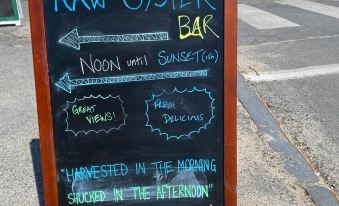 RAW OYSTER
BAR
NOON until SUNSET(ish)
GREAT
VIEWS!
FRESH
DELICIOUS
"HARVESTED IN THE MORNING
SHUCKED IN THE AFTERNOON"